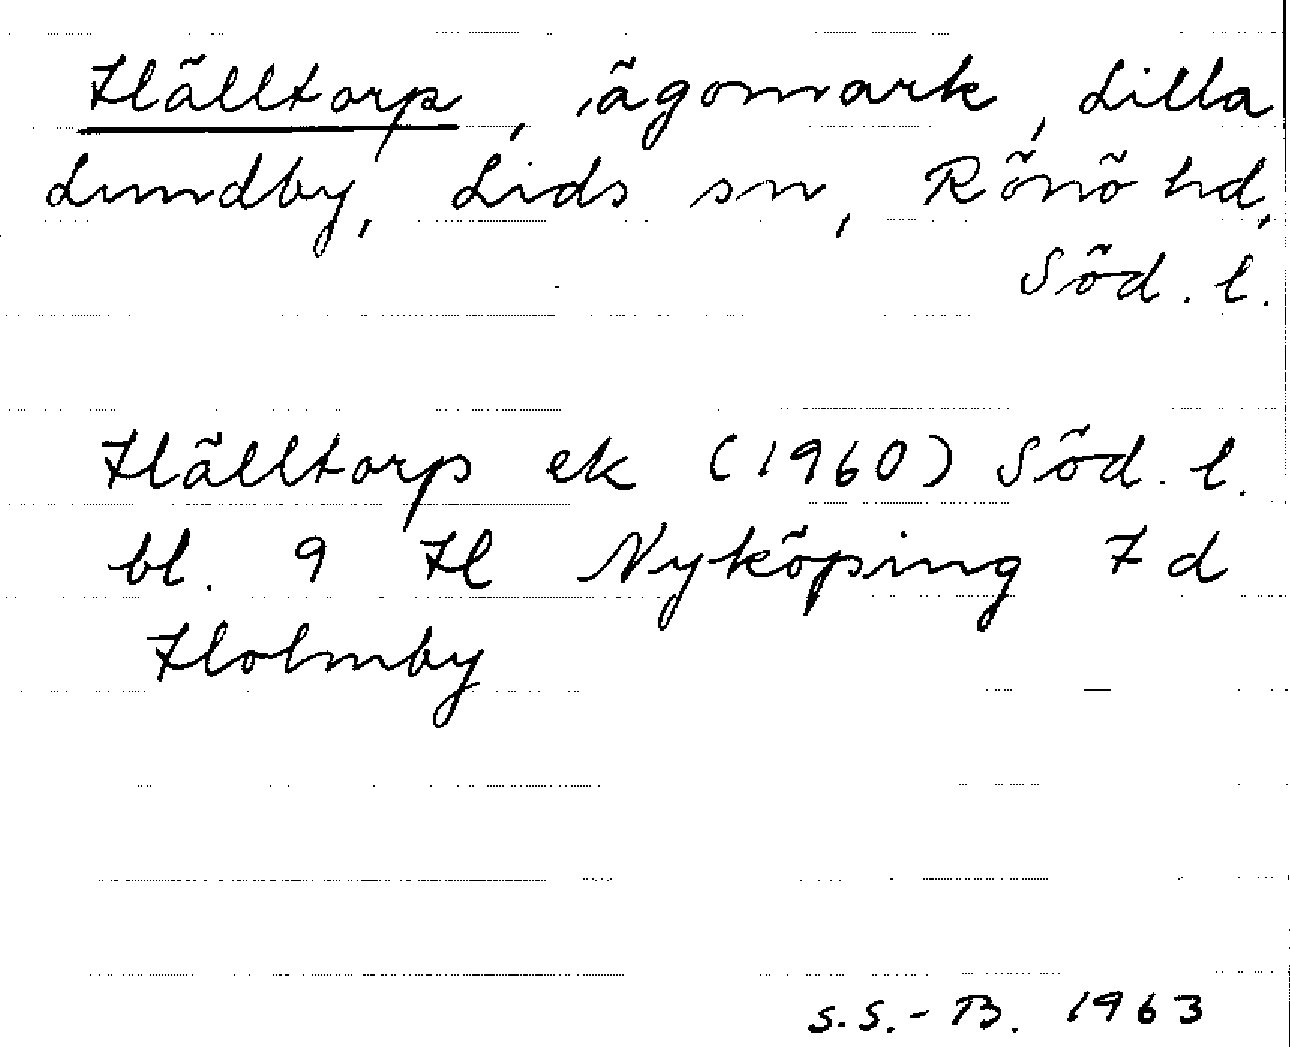 Hälltorp, ägomark, Lilla
Lundby, Lids sn, Rönö hd,
Söd. l.
Hälltorp ek (1960) Söd. l.
bl. 9 H Nyköping 7 d
Holmby
S.S.-B. 1963